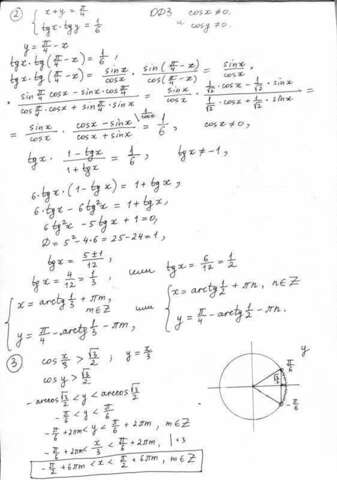 ② { x+y = π/4
tgx·tgy = 1/6
ОДЗ cosx ≠ 0.
и cosy ≠ 0.
y = π/4 - x
tgx·tg(π/4 - x) = 1/6 ;
tgx·tg(π/4 - x) = sinx/cosx · sin(π/4 - x)/cos(π/4 - x) = sinx/cosx ·
· (sin π/4 cosx - sinx·cos π/4)/(cos π/4·cosx + sin π/4 sinx) = sinx/cosx · (1/√2·cosx - 1/√2·sinx)/(1/√2·cosx + 1/√2·sinx) =
= sinx/cosx · (cosx - sinx)/(cosx + sinx) = 1/6 , cosx ≠ 0,
tgx · (1 - tgx)/(1 + tgx) = 1/6 , tgx ≠ -1,
6·tgx·(1 - tgx) = 1 + tgx,
6·tgx - 6tg²x = 1 + tgx,
6tg²x - 5tgx + 1 = 0,
D = 5² - 4·6 = 25 - 24 = 1,
tgx = (5±1)/12 ,
tgx = 4/12 = 1/3 , или tgx = 6/12 = 1/2
{ x = arctg 1/3 + πm, m∈Z
y = π/4 - arctg 1/3 - πm,
или
{ x = arctg 1/2 + πn, n∈Z
y = π/4 - arctg 1/2 - πn.
③ cos x/3 > √3/2 ; y = x/3
cosy > √3/2
-arccos √3/2 < y < arccos √3/2
-π/6 < y < π/6
-π/6 + 2πm < y < π/6 + 2πm, m∈Z
-π/6 + 2πm < x/3 < π/6 + 2πm, | ·3
-π/2 + 6πm < x < π/2 + 6πm, m∈Z
y
π/6
√3/2
-π/6